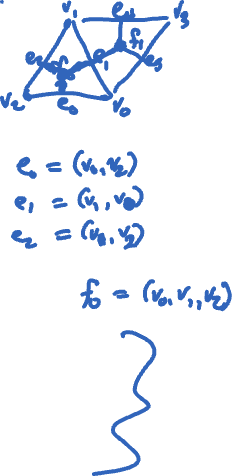 v₁ e₄ v₃
e₂ f₀ e₁ f₁ e₃
v₂ e₀ v₀
e₀ = (v₀, v₂)
e₁ = (v₁, v₀)
e₂ = (v₁, v₂)
f₀ = (v₀, v₁, v₂)